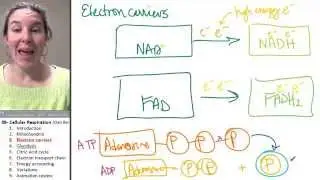 Electron carriers
high energy e⁻
NAD⁺
e⁻ e⁻
NADH
FAD
e⁻ e⁻
FADH₂
ATP Adenosine P P P
ADP Adenosine P P + P
Cellular Respiration
1. Introduction
2. Mitochondria
3. Electron carriers
4. Glycolysis
5. Citric acid cycle
6. Electron transport chain
7. Energy accounting
8. Variations